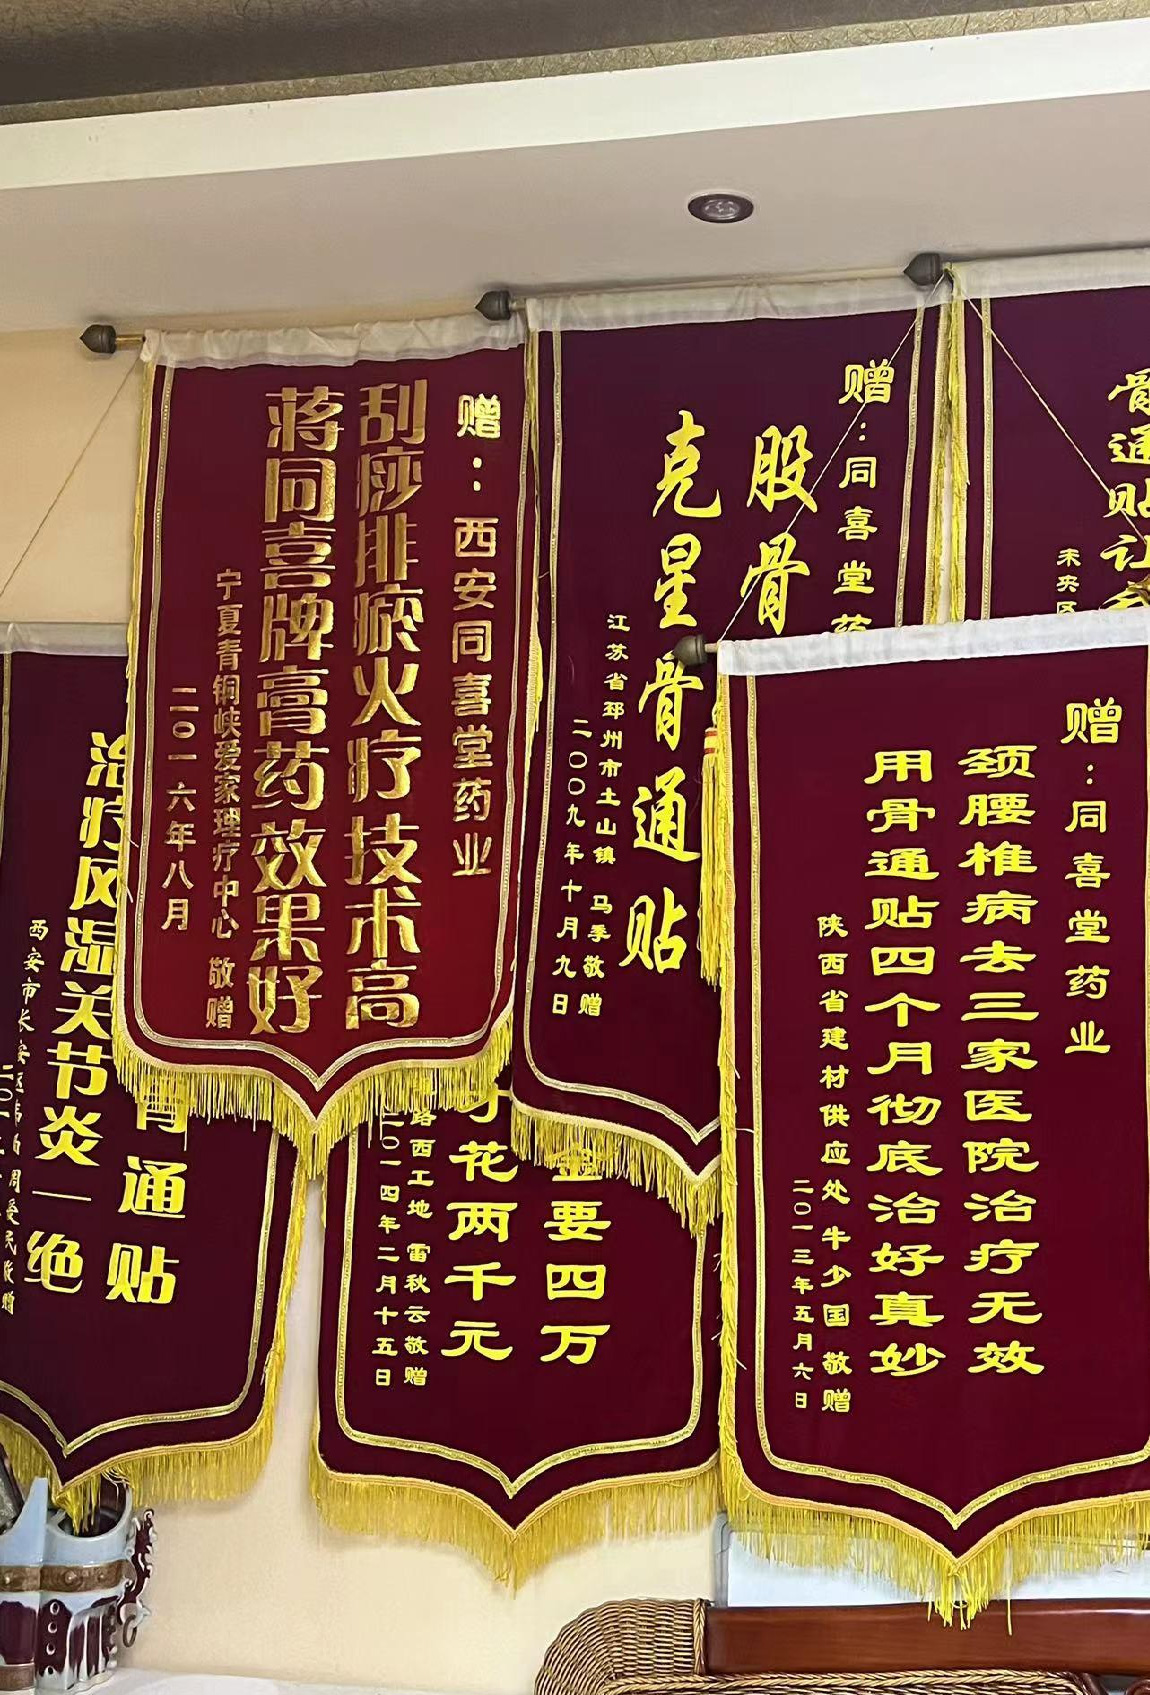 赠：西安同喜堂药业
刮痧排瘀火疗技术高
蒋同喜牌膏药效果好
宁夏青铜峡爱家理疗中心 敬赠
二〇一六年八月
赠：同喜堂药
股骨
克星骨通贴
江苏省邳州市土山镇 马季敬赠
二〇〇九年十月九日
骨通贴让
未央区
赠：同喜堂药业
颈腰椎病去三家医院治疗无效
用骨通贴四个月彻底治好真妙
陕西省建材供应处 牛少国 敬赠
二〇一三年五月六日
骨通贴
治疗风湿关节炎一绝
西安市长安区
金要四万
花两千元
路西工地 雷秋云敬赠
二〇一四年二月十五日